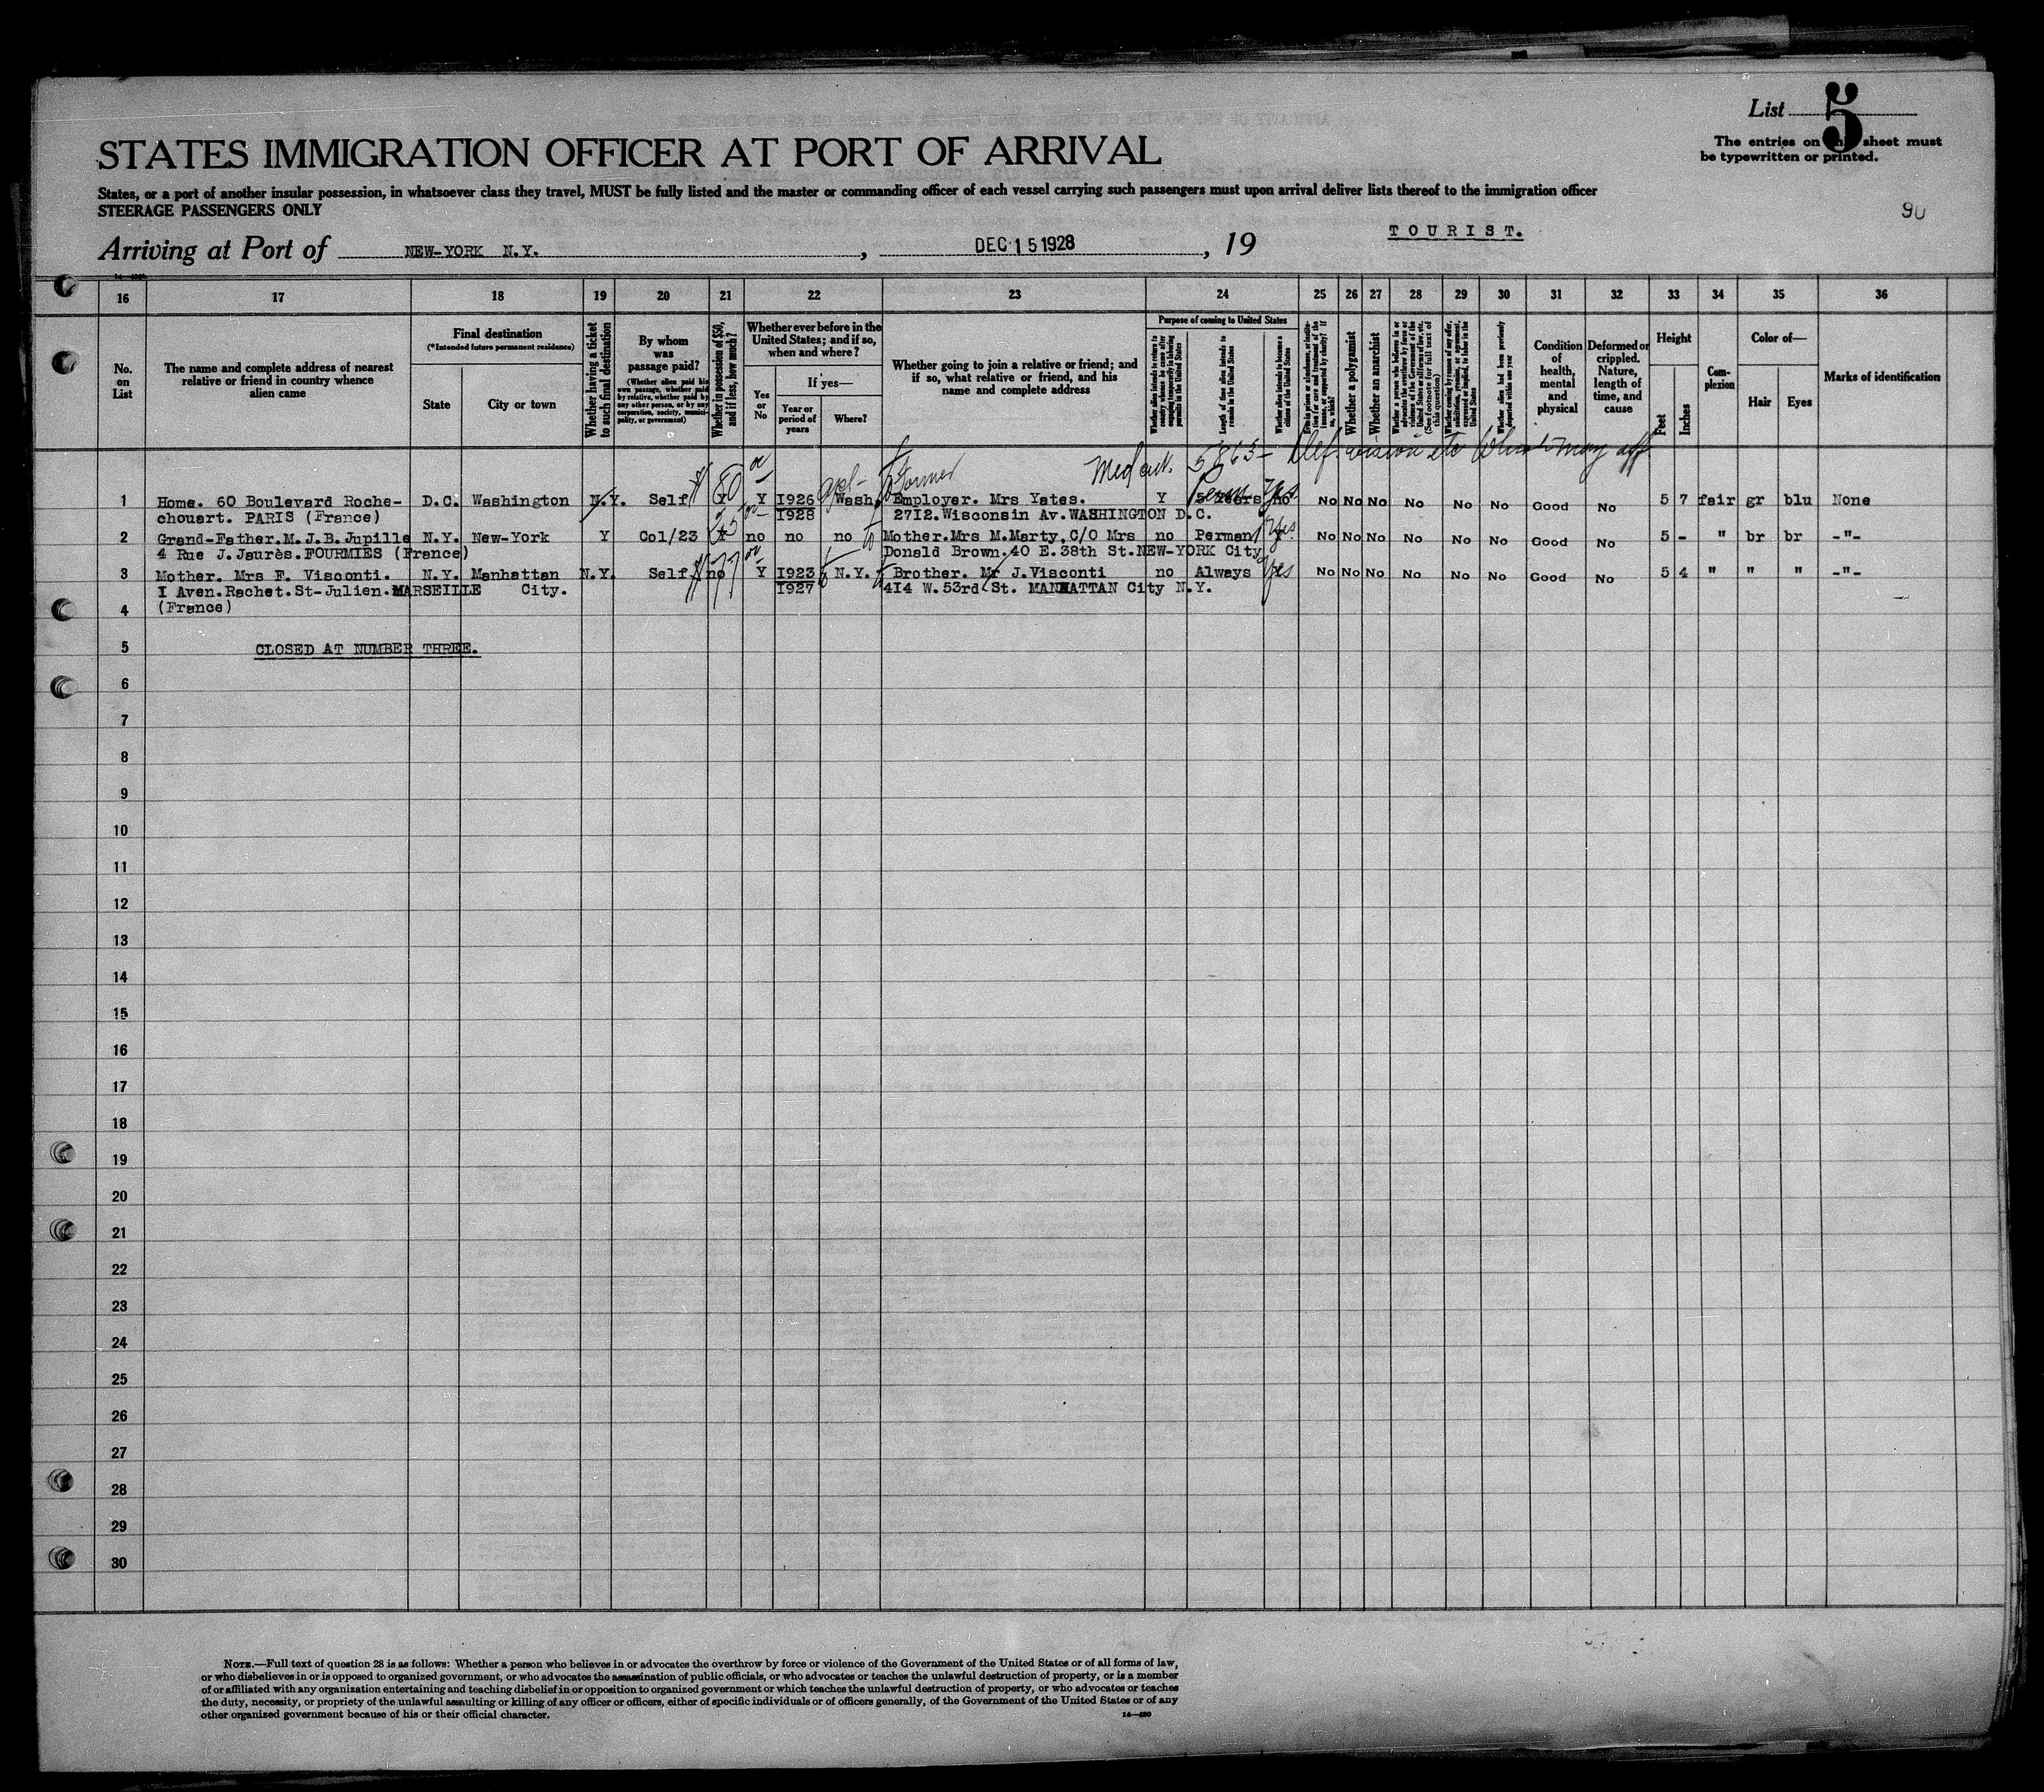 List 5
The entries on this sheet must
be typewritten or printed.
STATES IMMIGRATION OFFICER AT PORT OF ARRIVAL
States, or a port of another insular possession, in whatsoever class they travel, MUST be fully listed and the master or commanding officer of each vessel carrying such passengers must upon arrival deliver lists thereof to the immigration officer
STEERAGE PASSENGERS ONLY
90
TOURIST.
Arriving at Port of NEW-YORK N.Y., DEC 15 1928, 19
16 17 18 19 20 21 22 23 24 25 26 27 28 29 30 31 32 33 34 35 36
No. on List
The name and complete address of nearest relative or friend in country whence alien came
Final destination
(*Intended future permanent residence)
State
City or town
Whether having a ticket to such final destination
By whom was passage paid?
(Whether alien paid his own passage, whether paid by relative, whether paid by any other person, or by any corporation, society, municipality, or government)
Whether in possession of $50, and if less, how much?
Whether ever before in the United States; and if so, when and where?
Yes or No
If yes—
Year or period of years
Where?
Whether going to join a relative or friend; and if so, what relative or friend, and his name and complete address
Purpose of coming to United States
Whether alien intends to return to country whence he came after engaging temporarily in laboring pursuits in the United States
Length of time alien intends to remain in the United States
Whether alien intends to become a citizen of the United States
Whether a polygamist
Whether an anarchist
Condition of health, mental and physical
Deformed or crippled. Nature, length of time, and cause
Height
Feet
Inches
Complexion
Color of—
Hair
Eyes
Marks of identification
Med cert. 5863 - Def. vision etc which may aff
1 Home. 60 Boulevard Roche- D.C. Washington N.Y. Self $80 Y Y 1926 Wash. Former Employer. Mrs Yates. Y 5 Years Perm no Yes No No No No No No Good No 5 7 fair gr blu None
chouart. PARIS (France) 1928 2712.Wisconsin Av.WASHINGTON D.C.
2 Grand-Father.M.J.B.Jupille N.Y. New-York Y Col/23 no no no Mother.Mrs M.Marty,C/O Mrs no Perman Yes No No No No No No Good No 5 - " br br -"-
4 Rue J.Jaurès.FOURMIES (France) Donald Brown.40 E.38th St.NEW-YORK City
3 Mother. Mrs F. Visconti. N.Y. Manhattan N.Y. Self no $77 Y 1923 N.Y. Brother. Mr J.Visconti no Always Yes No No No No No No Good No 5 4 " " " -"-
I Aven.Rachet.St-Julien.MARSEILLE City. 1927 414 W.53rd St. MANHATTAN City N.Y.
4 (France)
5 CLOSED AT NUMBER THREE.
6
7
8
9
10
11
12
13
14
15
16
17
18
19
20
21
22
23
24
25
26
27
28
29
30
NOTE.—Full text of question 28 is as follows: Whether a person who believes in or advocates the overthrow by force or violence of the Government of the United States or of all forms of law,
or who disbelieves in or is opposed to organized government, or who advocates the assassination of public officials, or who advocates or teaches the unlawful destruction of property, or is a member
of or affiliated with any organization entertaining and teaching disbelief in or opposition to organized government or which teaches the unlawful destruction of property, or who advocates or teaches
the duty, necessity, or propriety of the unlawful assaulting or killing of any officer or officers, either of specific individuals or of officers generally, of the Government of the United States or of any
other organized government because of his or their official character.
14—490